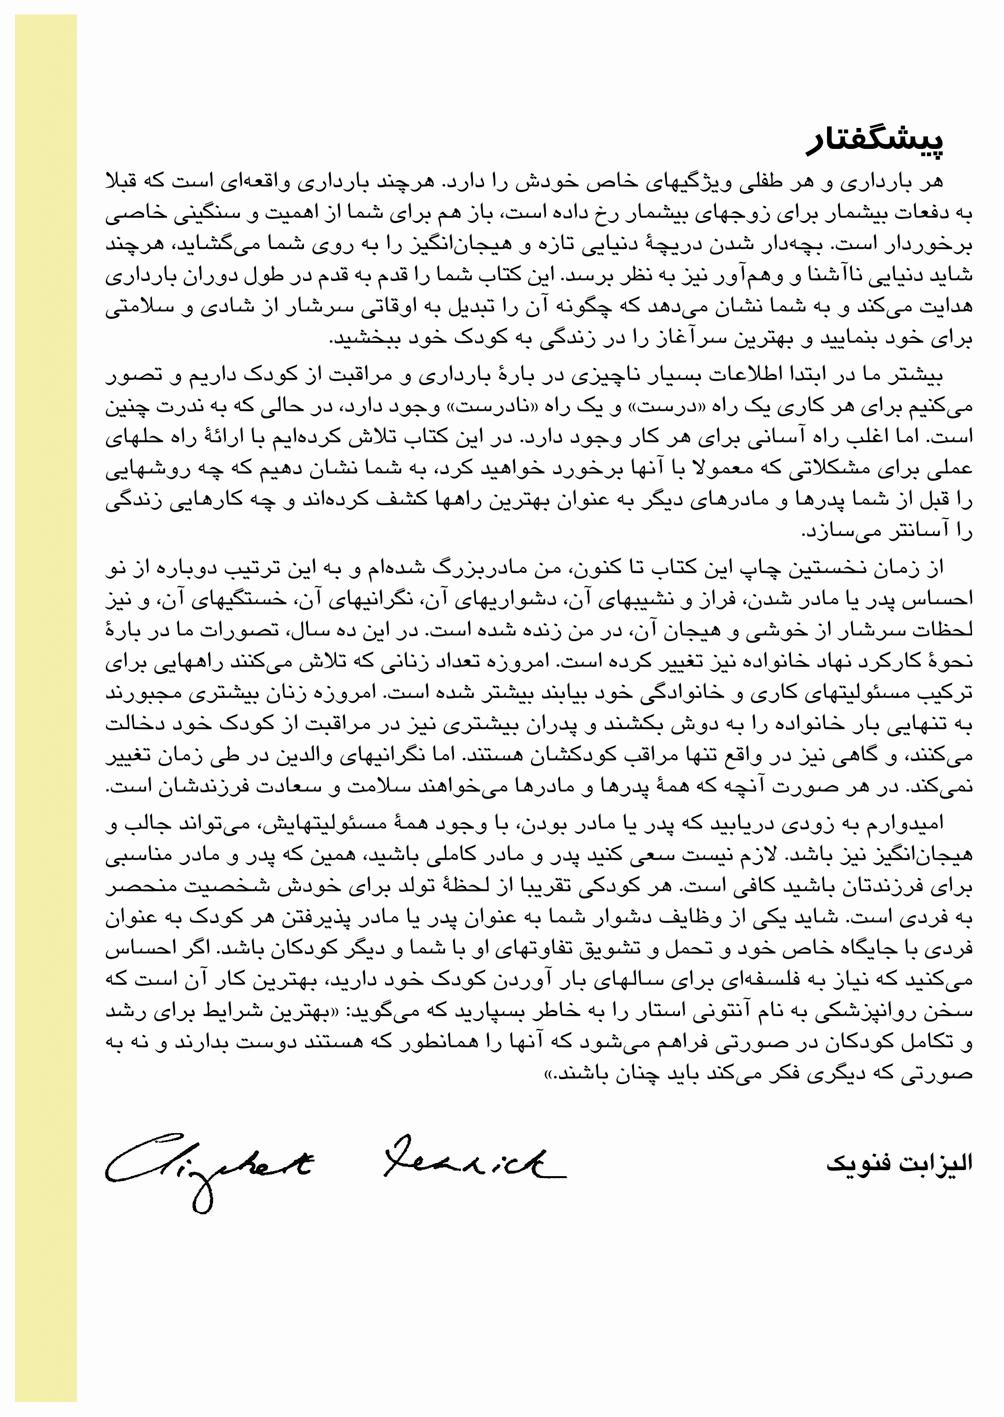 پیشگفتار
هر بارداری و هر طفلی ویژگیهای خاص خودش را دارد. هرچند بارداری واقعه‌ای است که قبلا
به دفعات بیشمار برای زوجهای بیشمار رخ داده است، باز هم برای شما از اهمیت و سنگینی خاصی
برخوردار است. بچه‌دار شدن دریچهٔ دنیایی تازه و هیجان‌انگیز را به روی شما می‌گشاید، هرچند
شاید دنیایی ناآشنا و وهم‌آور نیز به نظر برسد. این کتاب شما را قدم به قدم در طول دوران بارداری
هدایت می‌کند و به شما نشان می‌دهد که چگونه آن را تبدیل به اوقاتی سرشار از شادی و سلامتی
برای خود بنمایید و بهترین سرآغاز را در زندگی به کودک خود ببخشید.
بیشتر ما در ابتدا اطلاعات بسیار ناچیزی در بارهٔ بارداری و مراقبت از کودک داریم و تصور
می‌کنیم برای هر کاری یک راه «درست» و یک راه «نادرست» وجود دارد، در حالی که به ندرت چنین
است. اما اغلب راه آسانی برای هر کار وجود دارد. در این کتاب تلاش کرده‌ایم با ارائهٔ راه حلهای
عملی برای مشکلاتی که معمولا با آنها برخورد خواهید کرد، به شما نشان دهیم که چه روشهایی
را قبل از شما پدرها و مادرهای دیگر به عنوان بهترین راهها کشف کرده‌اند و چه کارهایی زندگی
را آسانتر می‌سازد.
از زمان نخستین چاپ این کتاب تا کنون، من مادربزرگ شده‌ام و به این ترتیب دوباره از نو
احساس پدر یا مادر شدن، فراز و نشیبهای آن، دشواریهای آن، نگرانیهای آن، خستگیهای آن، و نیز
لحظات سرشار از خوشی و هیجان آن، در من زنده شده است. در این ده سال، تصورات ما در بارهٔ
نحوهٔ کارکرد نهاد خانواده نیز تغییر کرده است. امروزه تعداد زنانی که تلاش می‌کنند راههایی برای
ترکیب مسئولیتهای کاری و خانوادگی خود بیابند بیشتر شده است. امروزه زنان بیشتری مجبورند
به تنهایی بار خانواده را به دوش بکشند و پدران بیشتری نیز در مراقبت از کودک خود دخالت
می‌کنند، و گاهی نیز در واقع تنها مراقب کودکشان هستند. اما نگرانیهای والدین در طی زمان تغییر
نمی‌کند. در هر صورت آنچه که همهٔ پدرها و مادرها می‌خواهند سلامت و سعادت فرزندشان است.
امیدوارم به زودی دریابید که پدر یا مادر بودن، با وجود همهٔ مسئولیتهایش، می‌تواند جالب و
هیجان‌انگیز نیز باشد. لازم نیست سعی کنید پدر و مادر کاملی باشید، همین که پدر و مادر مناسبی
برای فرزندتان باشید کافی است. هر کودکی تقریبا از لحظهٔ تولد برای خودش شخصیت منحصر
به فردی است. شاید یکی از وظایف دشوار شما به عنوان پدر یا مادر پذیرفتن هر کودک به عنوان
فردی با جایگاه خاص خود و تحمل و تشویق تفاوتهای او با شما و دیگر کودکان باشد. اگر احساس
می‌کنید که نیاز به فلسفه‌ای برای سالهای بار آوردن کودک خود دارید، بهترین کار آن است که
سخن روانپزشکی به نام آنتونی استار را به خاطر بسپارید که می‌گوید: «بهترین شرایط برای رشد
و تکامل کودکان در صورتی فراهم می‌شود که آنها را همانطور که هستند دوست بدارند و نه به
صورتی که دیگری فکر می‌کند باید چنان باشند.»
الیزابت فنویک
Elizabeth Fenwick